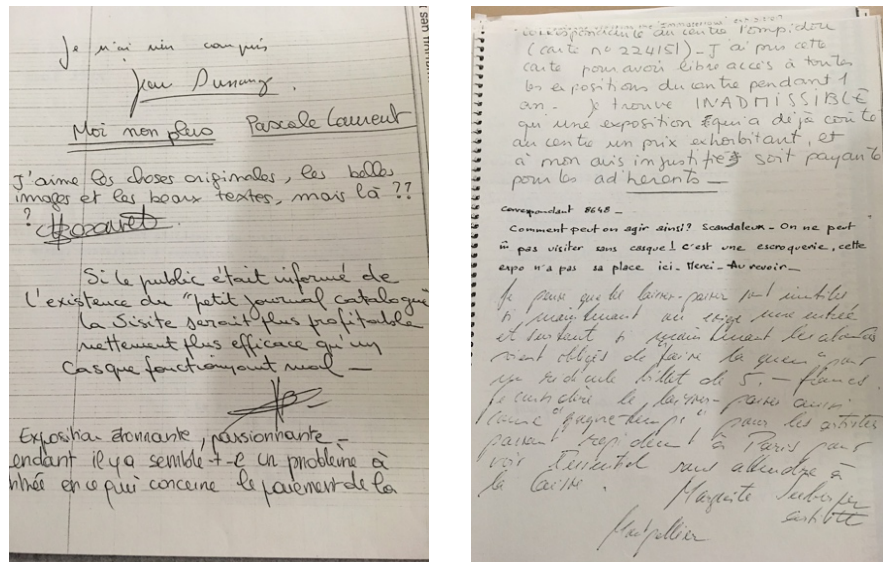 Je n'ai rien compris
Jean
Moi non plus Pascale Laurent
J'aime les choses originales, les belles
images et les beaux textes, mais là ??
?
Si le public était informé de
l'existence du "petit journal catalogue"
la Sisite serait plus profitable
nettement plus efficace qu'un
casque fonctionnant mal —
Exposition étonnante, passionnante —
endant il y a semble-t-e un problème à
ntrée en ce qui concerne le paiement de la
correspondante du centre Pompidou
(carte n° 224151) - J'ai pris cette
carte pour avoir libre accès à toutes
les expositions du centre pendant 1
an. Je trouve INADMISSIBLE
qu'une exposition qui a déjà coûté
au centre un prix exhorbitant, et
à mon avis injustifié soit payante
pour les adhérents —
Correspondant 8648 -
Comment peut on agir ainsi? Scandaleux - On ne peut
pas visiter sans casque! C'est une escroquerie, cette
expo n'a pas sa place ici. Merci - Au revoir -
Je pense que les laisser-passer sont inutiles
si maintenant on exige une entrée
et surtout si maintenant les
soient obligés de faire la queue pour
un ridicule billet de 5.- francs.
Je considère le laisser-passer aussi
comme "gagne-temps" pour les artistes
passant rapidement à Paris pour
voir l'essentiel sans attendre à
la caisse. Marguerite
Montpellier